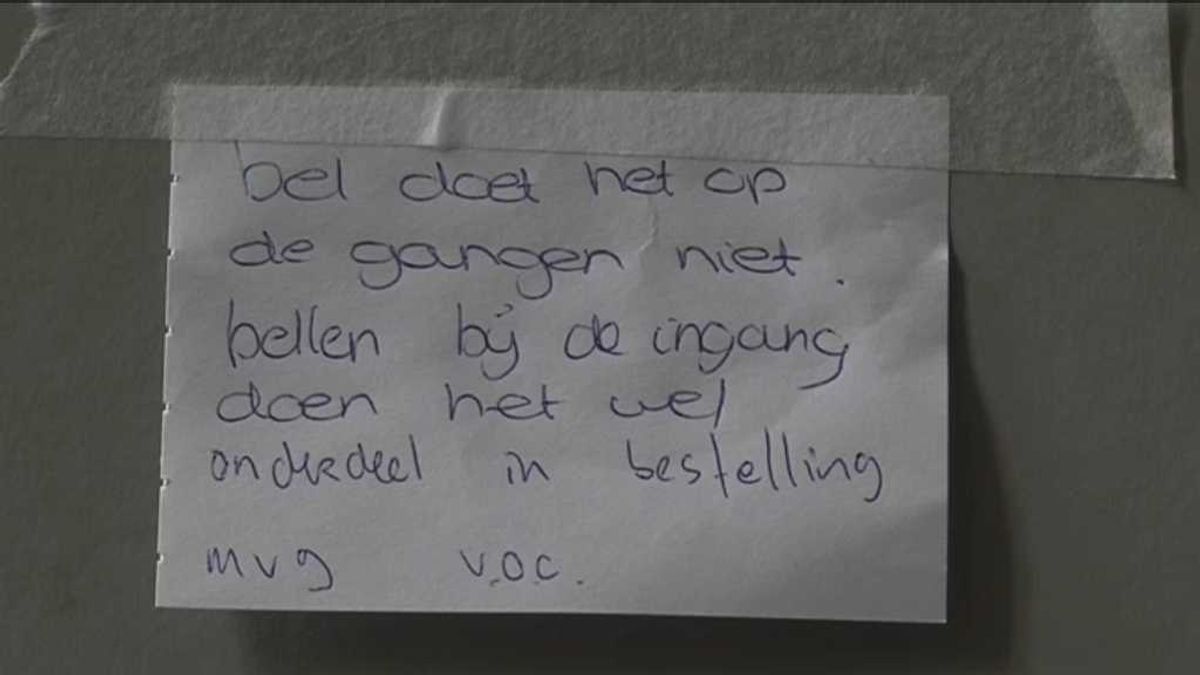 bel doet het op
de gangen niet.
bellen bij de ingang
doen het wel
onderdeel in bestelling
mvg v.o.c.